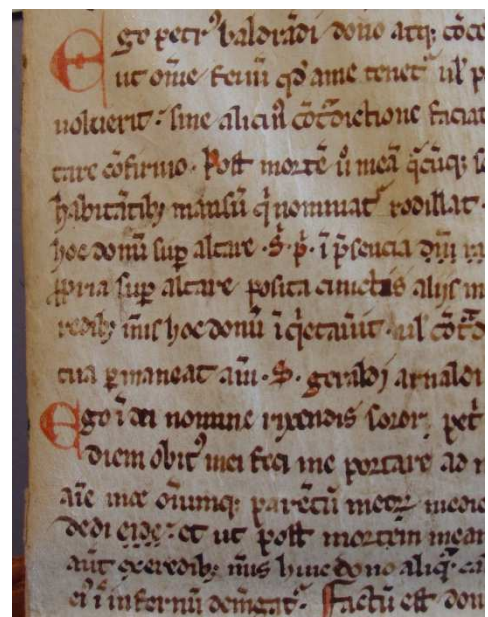 Ego petr᾽ baldrādi dono atq; cōco
ut om̄e feuū qd̓ ame tenet᷑ ul̓ p
uoluerit sine alicui᾽ cōt᷑dictione faciat
tare cōfirmo. Post mortē ů meā q̄cūq;
habitātib; mansū q̓ nominat᷑ rodillat.
hoc donū sup altare .S̄. p̄. ī p̄sencia
ꝓpria sup altare posita cunctis alijs in
redib; meis hoc donū īq̓etauit ul̓ cōt᷑d
tua ꝑmaneat .S. geraldi arnaldi
Ego ī dei nomine rixendis soror petr̄
diem obit᾽ mei feci me portare ad
aīe mee om̄iumq; parētū meoꝝ medie
dedi eide et ut post mortem mean
aut exeredib; meis huic dono aliq̄
ei᾽ ī infernū demgat᷑. Factū est don